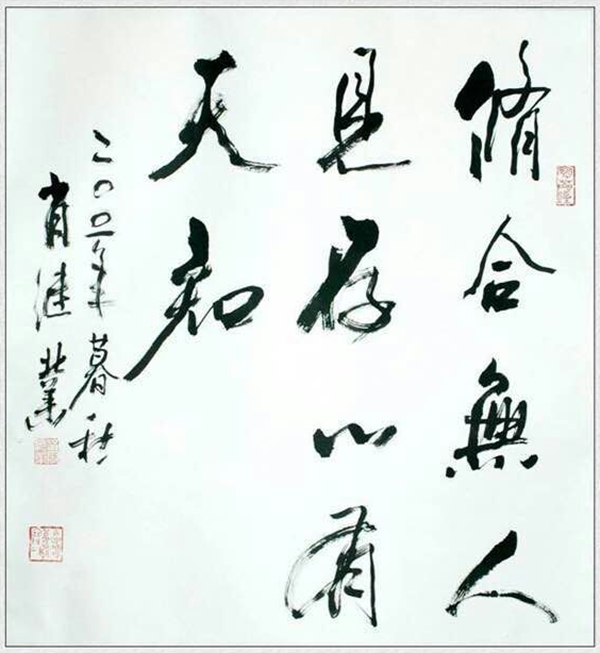 脩合無人
見存心有
天知
二〇〇一年暮秋
肖建業